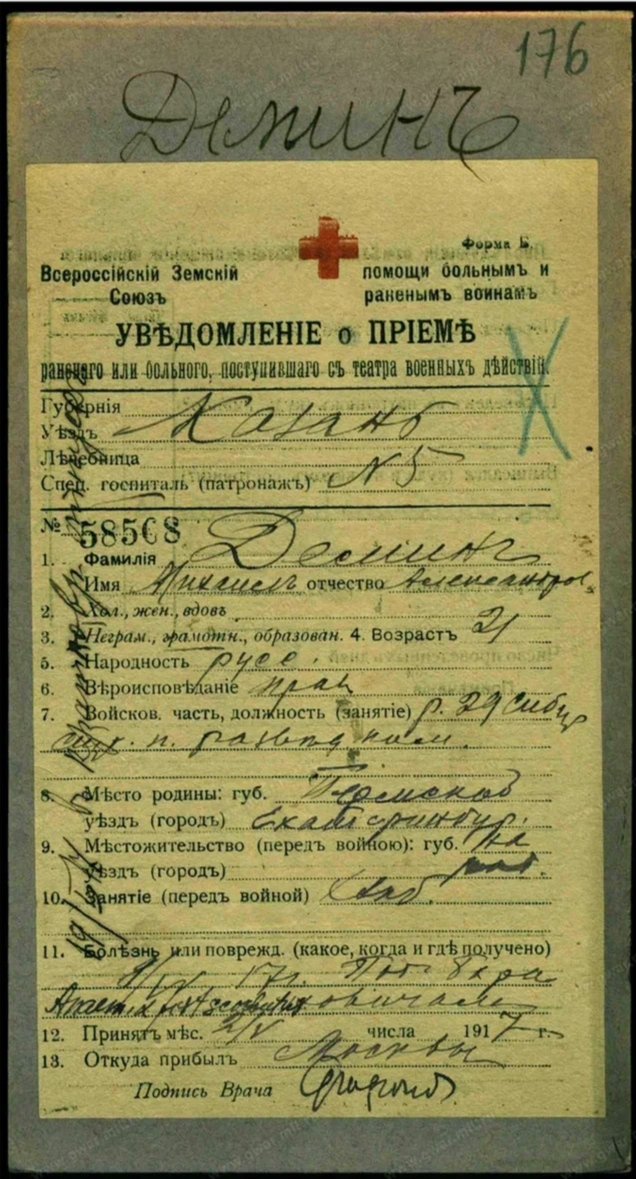 176
Деминъ
Форма Б.
Всероссійскій Земскій
Союзъ
помощи больнымъ и
раненымъ воинамъ
УВѢДОМЛЕНІЕ о ПРІЕМѢ
раненаго или больного, поступившаго съ театра военныхъ дѣйствій.
Губернія
Уѣздъ Казань
Лѣчебница
Спец. госпиталь (патронажъ) N 5
№ 58508
1. Фамилія Деминъ
Имя Михаилъ отчество Александров.
2. Хол., жен., вдовъ
3. Неграм., грамотн., образован. 4. Возрастъ 21
5. Народность русс.
6. Вѣроисповѣданіе прав
7. Войсков. часть, должность (занятіе) р. 29 Сибир
стр. п.
8. Мѣсто родины: губ. Пермская
уѣздъ (городъ) Екатеринбур.
9. Мѣстожительство (передъ войною): губ.
уѣздъ (городъ)
10. Занятіе (передъ войной)
11. Болѣзнь или поврежд. (какое, когда и гдѣ получено)
17г.
12. Принятъ мѣс. 2/V числа 1917 г.
13. Откуда прибылъ Москвы
Подпись Врача